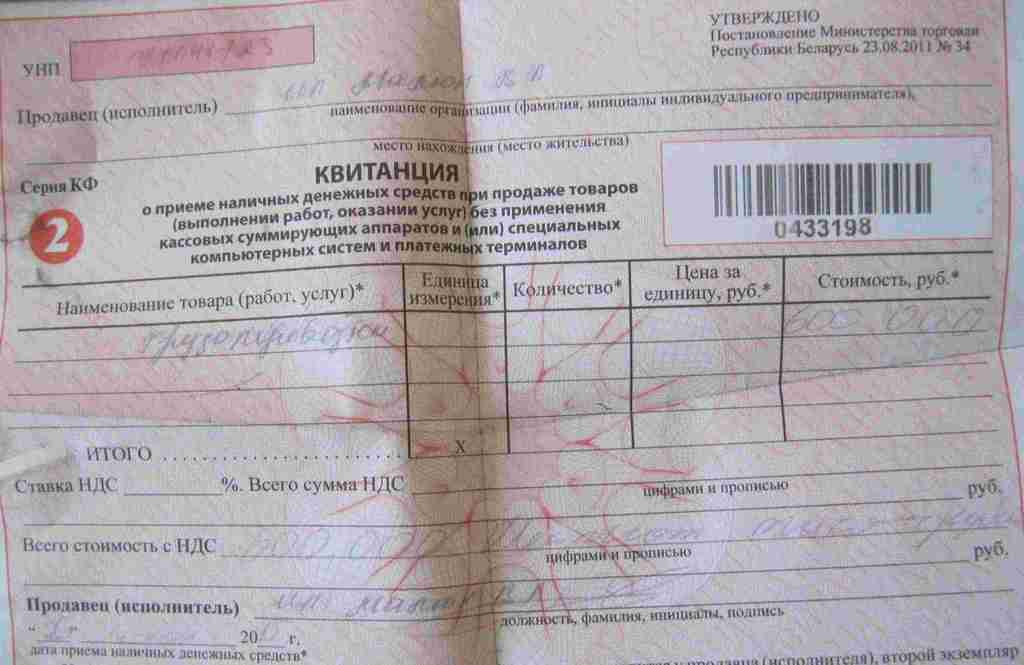 УТВЕРЖДЕНО
Постановление Министерства торговли
Республики Беларусь 23.08.2011 № 34
УНП
Продавец (исполнитель)
наименование организации (фамилия, инициалы индивидуального предпринимателя),
место нахождения (место жительства)
Серия КФ
2
КВИТАНЦИЯ
о приеме наличных денежных средств при продаже товаров
(выполнении работ, оказании услуг) без применения
кассовых суммирующих аппаратов и (или) специальных
компьютерных систем и платежных терминалов
0433198
Наименование товара (работ, услуг)* Единица измерения* Количество* Цена за единицу, руб.* Стоимость, руб.*
грузоперевозки 600 000
ИТОГО ........................ Х
Ставка НДС ________ %. Всего сумма НДС
цифрами и прописью руб.
Всего стоимость с НДС 600 000 Шестьсот
цифрами и прописью руб.
Продавец (исполнитель) ИП
должность, фамилия, инициалы, подпись
" " 20 г.
дата приема наличных денежных средств*
продавца (исполнителя), второй экземпляр